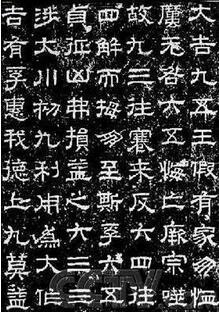 大吉九五王假有家勿
厲无咎六五悔亡厥宗噬
故九三往蹇来反六四往
四解而拇朋至斯孚六五
貞征凶弗損益之六三三
涉大川初九利用為大作
吉有孚惠我德上九莫益
CCTV